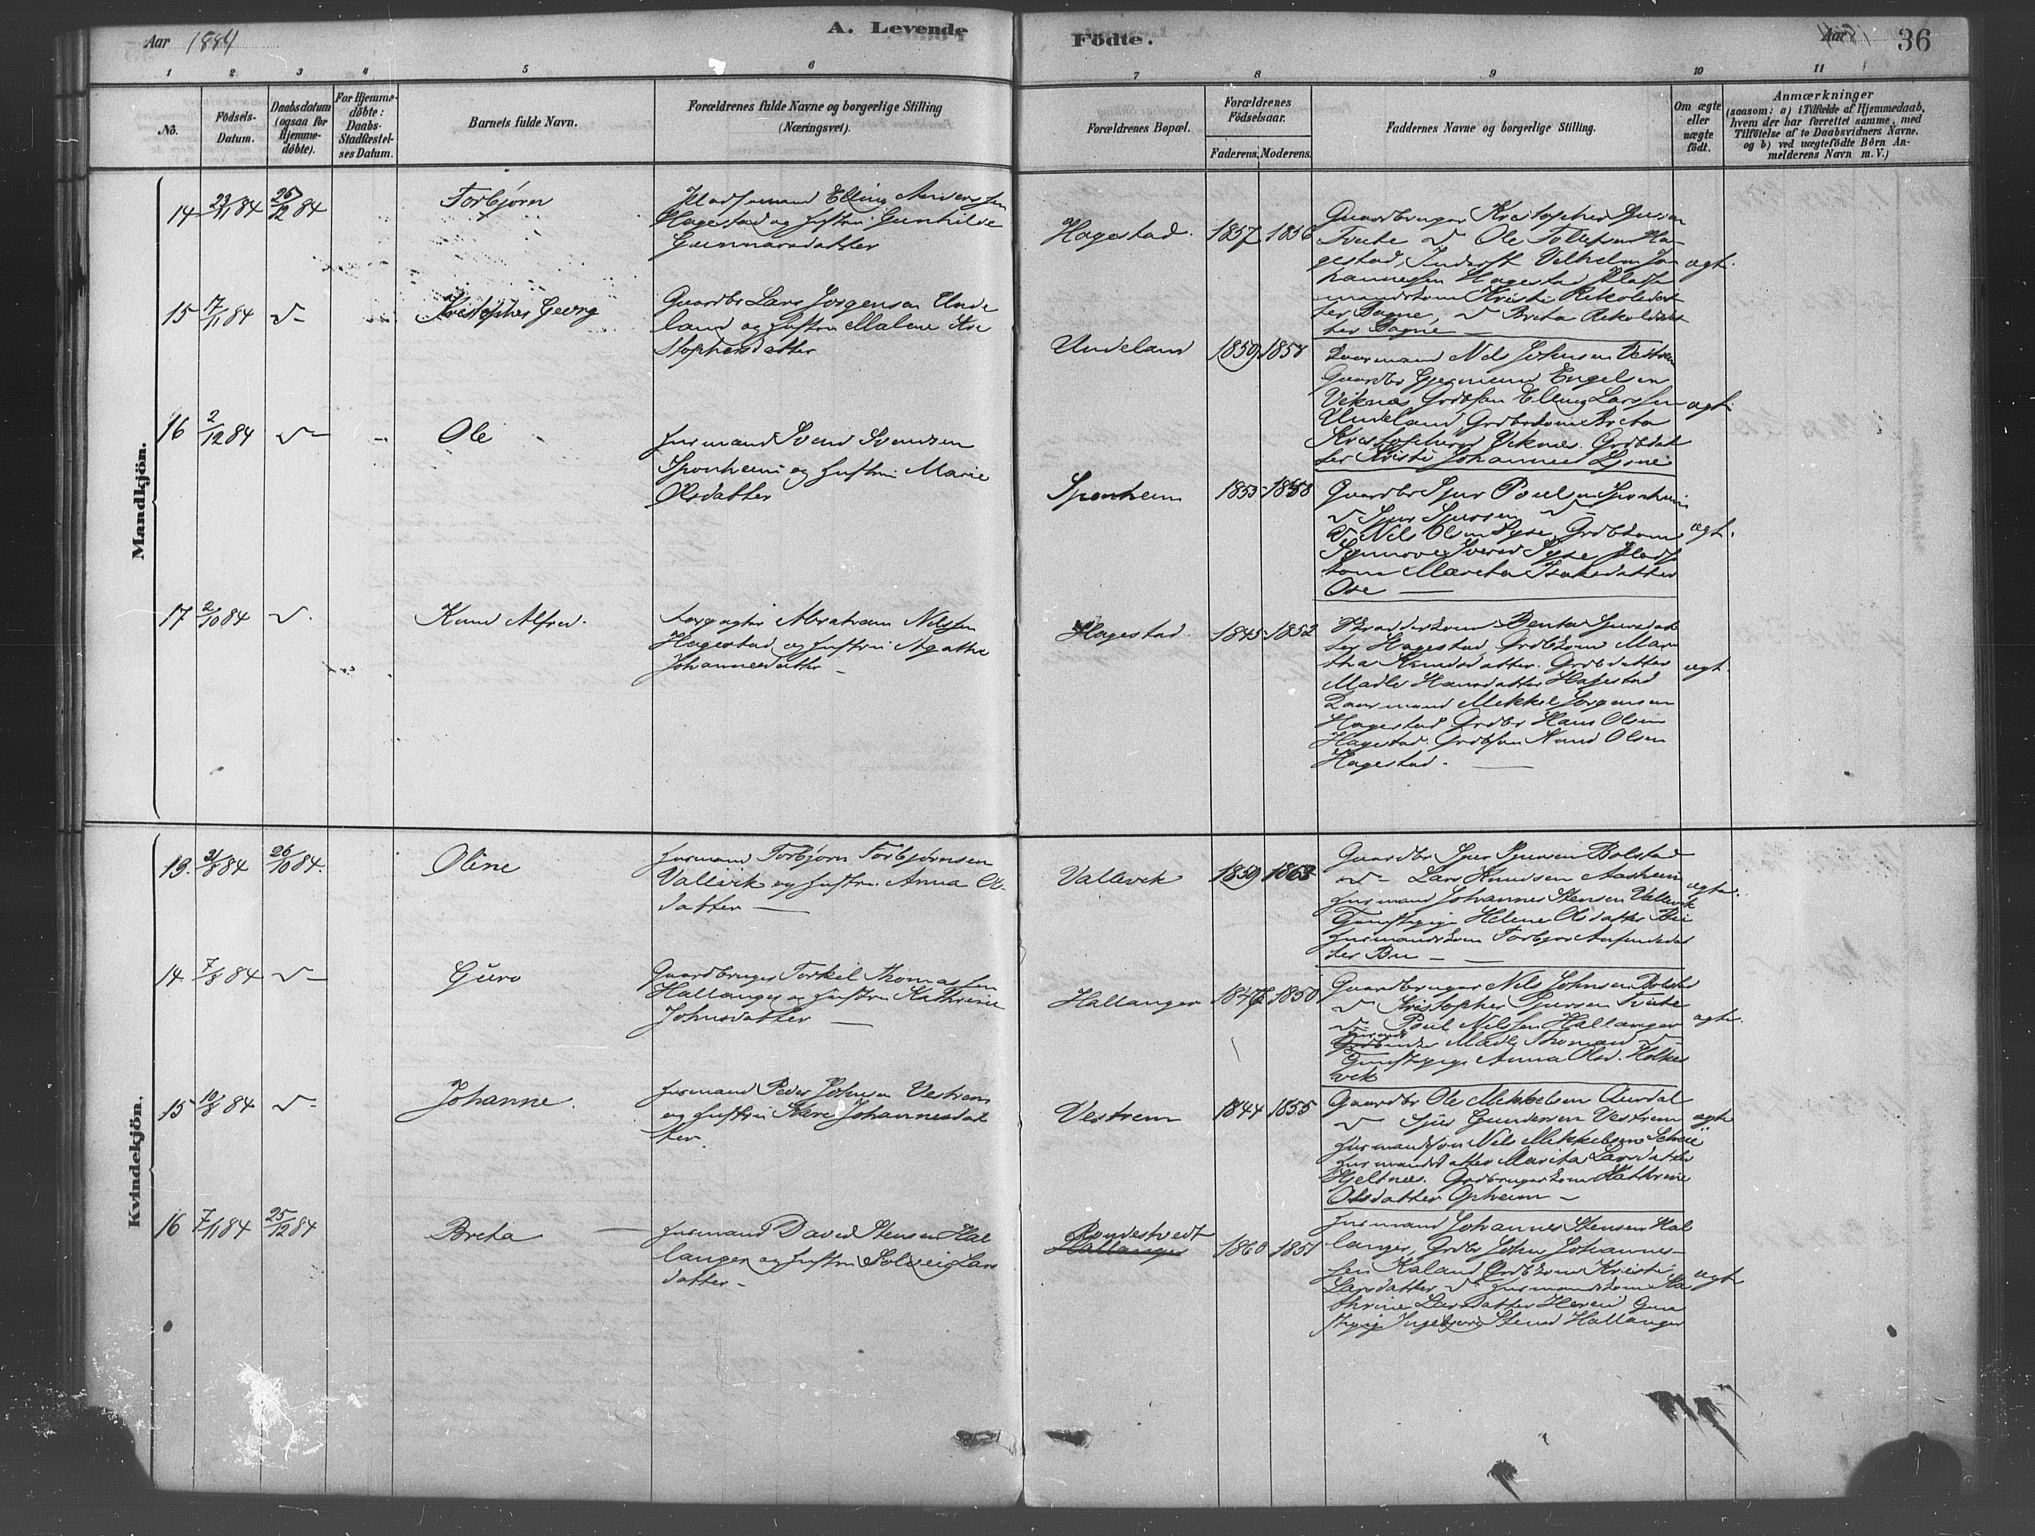 Aar 1884
A. Levende
Födte.
Aar
36
1 2 3 4 5 6 7 8 9 10 11
No.
Födsels-
Datum.
Daabsdatum
(ogsaa for
Hjemme-
döbte).
For Hjemme-
döbte:
Daabs-
Stadfæstel-
ses Datum.
Barnets fulde Navn.
Forældrenes fulde Navne og borgerlige Stilling
(Næringsvei).
Forældrenes Bopæl.
Forældrenes
Födselsaar.
Faderens.
Moderens.
Faddernes Navne og borgerlige Stilling.
Om ægte
eller
uægte
födt.
Anmærkninger
(saasom: a) i Tilfælde af Hjemmedaab,
hvem der har forrettet samme, med
Tilföielse af to Daabsvidners Navne.
og b) ved uægtefödte Börn An-
melderens Navn m. V.)
Mandkjön.
14 23/11 84 26/12 84
Torbjørn
Pladsmand Elling Andersen
Hagestad og Hustru Gunhilde
Gunnarsdatter
Hagestad.
1857 1856
Gaardbruger Kristopher
Tveite Ole Tollefsen Ha-
gestad, Inderst Vilhelm Jo-
hannessen Hagestad Plads
mandskone Kristi
Bagne, Brita
Bagne
ægt.
15 17/11 84
Kristopher Georg
Gaardbr Lars Jørgensen Unde
land og Hustru Malene Kri
stophersdatter
Undeland
1859 1858
Nels Johnsen Vestrem
Gaardbr Gjermund Engelsen
Viknæs Grdbsøn Elling Larsen
Undeland, Grdbrkone Brita
Kristophersd Viknæs. Grdbdat
ter Kristi Johannesd Lione
ægt.
16 2/12 84
Ole
Husmand Svend Svendsen
Sponheim og Hustru Marie
Olsdatter
Sponheim
1853 1858
Gaardbr Sjur Poulsen Sponheim
Sjur Sjursen
Nels Olsen Syse, Grdbkone
Synnove Syse Plads
kone Marita Isaksdatter
Ose
ægt.
17 2/10 84
Knud Alfred.
Forpagter Abraham Nilsen
Hagestad og Hustru Agatha
Johannesdatter
Hagestad
1845 1852
Benta
ter Hagestad, Grdbkone Mar
tha Knudsdatter. Grdbdatter
Madle Hansdatter Hagestad
Mikkel Jorgensen
Hagestad Grdbr Hans Olsen
Hagestad. Grdbsøn Knud Olsen
Hagestad.
ægt.
Kvindekjön.
13. 31/8 84 26/10 84.
Oline
Husmand Torbjørn Torbjørnsen
Vallevik og Hustru Anna Ols
datter
Vallevik
1859 1863
Gaardbr Sjur Sjursen Bolstad
Lars Knudsen Aasheim
Husmand Johannes Stensen Vallevik
Tjenestepige Helene Olsdatter Bu
Husmandskone Torbjor
ter Bu
ægte.
14 7/8 84
Guro
Gaardbruger Torkel Thomassen
Hallanger og Hustru Kathrine
Johnsdatter
Hallanger
1847 1850
Gaardbruger Nels Johnsen Bolstad
Kristopher Sjursen Tveite
Poul Nilsen Hallanger
Madle Thomasd
Tjenestepige Anna Olsd. Holke
vik
ægte.
15 10/8 84
Johanne.
Husmand Peder Johnsen Vestrem
og Hustru Kari Johannesdat
ter.
Vestrem
1844 1855
Gaardbr Ole Mikkelsen Aurdal
Sjur Gundersen Vestrem
Husmandssøn Nels Mikkelsen
Husmandsdatter Marita Larsdatter
Hjeltnes. Grdbrugerkone Kathrine
Olsdatter Opheim
ægte
16 7/11 84 25/12 84
Breta
Husmand David Stensen Hal
langer og Hustru Solveig Lars
datter
Rondestvedt
Hallanger
1860 1851
Husmand Johannes Stensen Hal
langer, Grdbr John Johannes-
sen Kaland Grdbkone Kristi
Larsdatter Husmandskone Ka
thrine Larsdatter Herei Tjene
stepige Ingeborg Stensd Hallanger
ægt